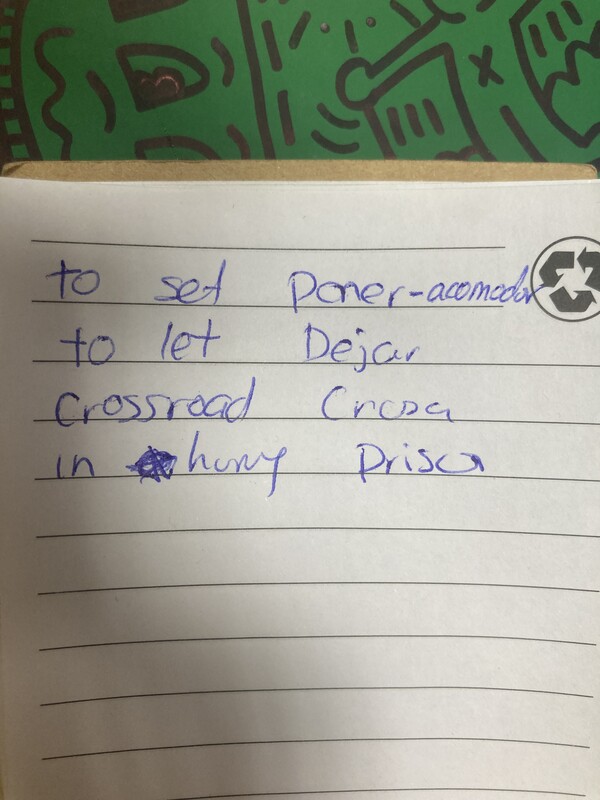 to set Poner-acomodar
to let Dejar
Crossroad
in hurry Prisa